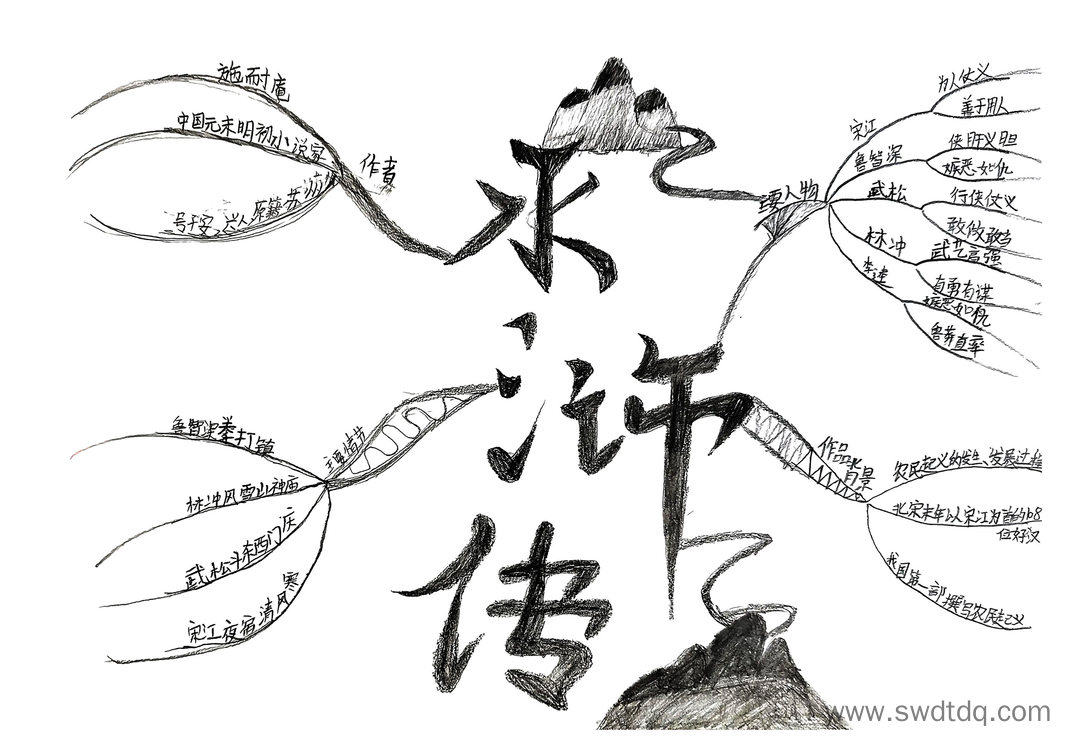 水浒传
作者
施耐庵
中国元末明初小说家
原籍苏
主要情节
打镇
林冲风雪山神
武松斗东西门庆
宋江夜宿清风寒
人物
宋江
为人仗义
善于用人
鲁智深
侠肝义胆
嫉恶如仇
武松
行侠仗义
敢做敢当
林冲
武艺高强
有谋
李逵
嫉恶如仇
鲁莽直率
作品背景
农民起义的发生、发展过程
北宋末年以宋江为首的108
位好汉
我国第一部撰写农民起义
www.swdtdq.com